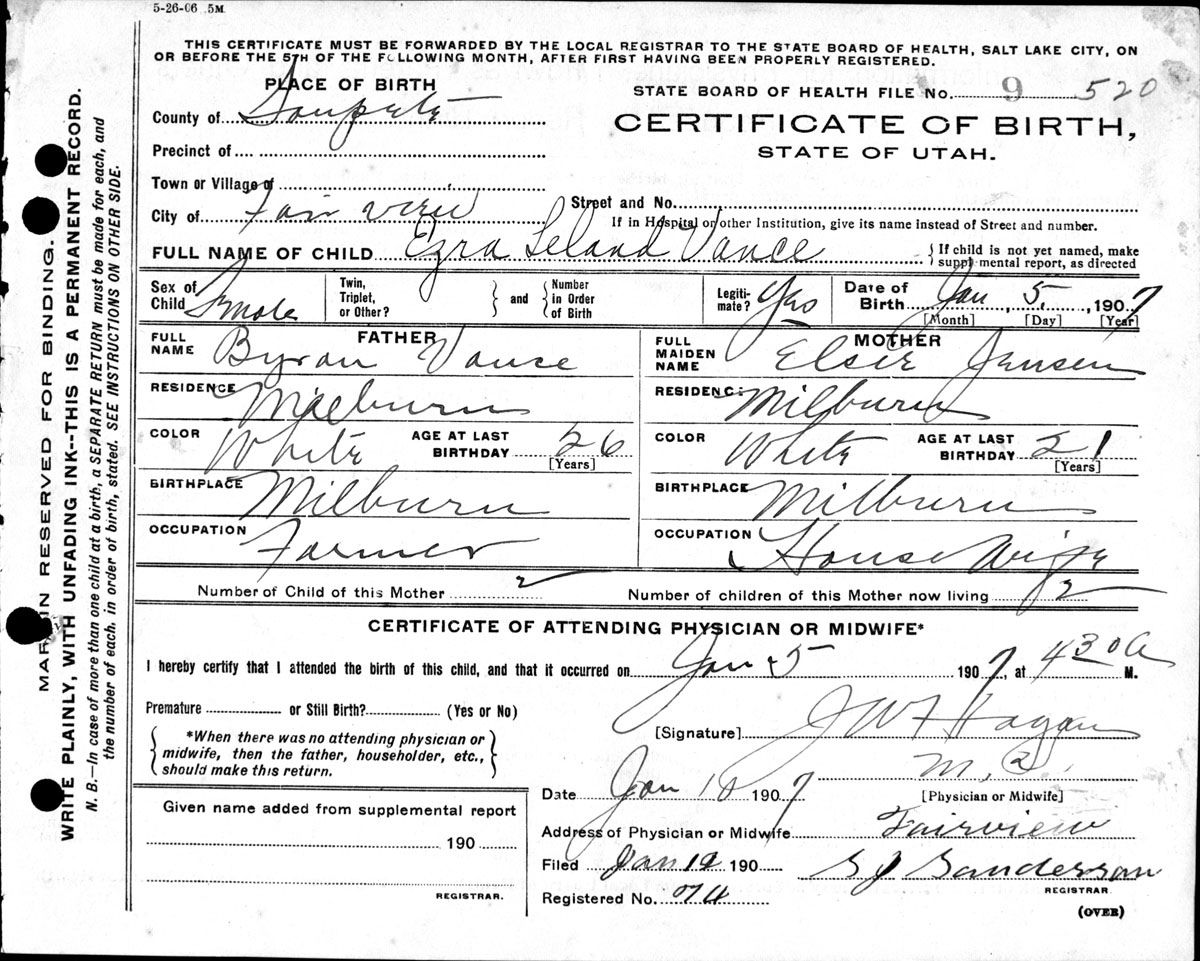 5-26-06 5M
THIS CERTIFICATE MUST BE FORWARDED BY THE LOCAL REGISTRAR TO THE STATE BOARD OF HEALTH, SALT LAKE CITY, ON
OR BEFORE THE 5TH OF THE FOLLOWING MONTH, AFTER FIRST HAVING BEEN PROPERLY REGISTERED.
PLACE OF BIRTH
STATE BOARD OF HEALTH FILE No. 9 520
County of Sanpete
CERTIFICATE OF BIRTH,
STATE OF UTAH.
Precinct of
Town or Village of
Street and No.
City of Fairview
If in Hospital or other Institution, give its name instead of Street and number.
FULL NAME OF CHILD Ezra Leland Vance
{ If child is not yet named, make
supplemental report, as directed
Sex of Child
Twin, Triplet, or Other? } and { Number in Order of Birth
Legitimate? Yes
Date of Birth Jan 5, 1907
[Month] [Day] [Year]
FATHER
FULL NAME Byron Vance
RESIDENCE Milburn
COLOR White AGE AT LAST BIRTHDAY 26
[Years]
BIRTHPLACE Milburn
OCCUPATION Farmer
MOTHER
FULL MAIDEN NAME Elsie Jensen
RESIDENCE Milburn
COLOR White AGE AT LAST BIRTHDAY 21
[Years]
BIRTHPLACE Milburn
OCCUPATION House Wife
Number of Child of this Mother 2 Number of children of this Mother now living 2
CERTIFICATE OF ATTENDING PHYSICIAN OR MIDWIFE*
I hereby certify that I attended the birth of this child, and that it occurred on Jan 5 1907, at 4 30 A M.
Premature or Still Birth? (Yes or No)
{ *When there was no attending physician or
midwife, then the father, householder, etc.,
should make this return. }
[Signature] J W F Hagan
M.D.
Date Jan 10 1907
[Physician or Midwife]
Given name added from supplemental report
190
REGISTRAR.
Address of Physician or Midwife Fairview
Filed Jan 190 Sanderson
REGISTRAR
Registered No. 74
(OVER)
MARGIN RESERVED FOR BINDING.
WRITE PLAINLY, WITH UNFADING INK--THIS IS A PERMANENT RECORD.
N. B.—In case of more than one child at a birth, a SEPARATE RETURN must be made for each, and
the number of each, in order of birth, stated. SEE INSTRUCTIONS ON OTHER SIDE.